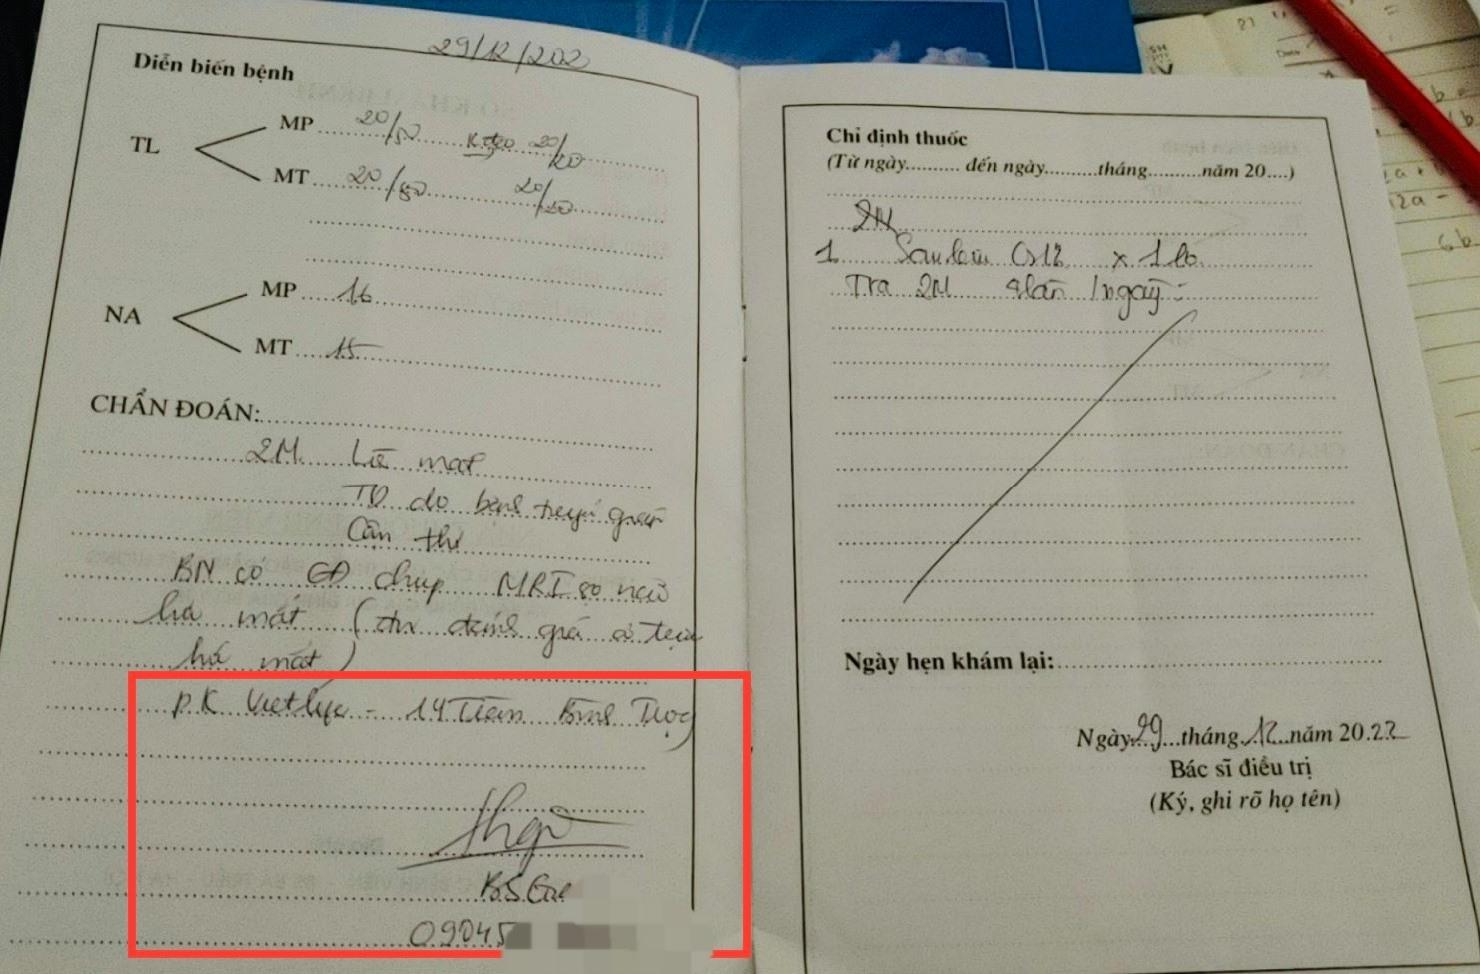 29/12/202
Diễn biến bệnh
TL
MP 20/50 K 20/20
MT 20/50 20/20
NA
MP 16
MT 15
CHẨN ĐOÁN:
2M. Lé mắt
TD do bệnh tuyến giáp
Cận thị
BN có CĐ chụp MRI sọ não
hố mắt (để đánh giá
hố mắt)
P.K Vietlife - 14 Trần Bình Trọng
BS
09045
Chỉ định thuốc
(Từ ngày.......... đến ngày..........tháng..........năm 20....)
2M
1. Sanlein 0,1% x 1 lọ
Tra 2M lần /ngày
Ngày hẹn khám lại:
Ngày 29 tháng 12 năm 2022
Bác sĩ điều trị
(Ký, ghi rõ họ tên)